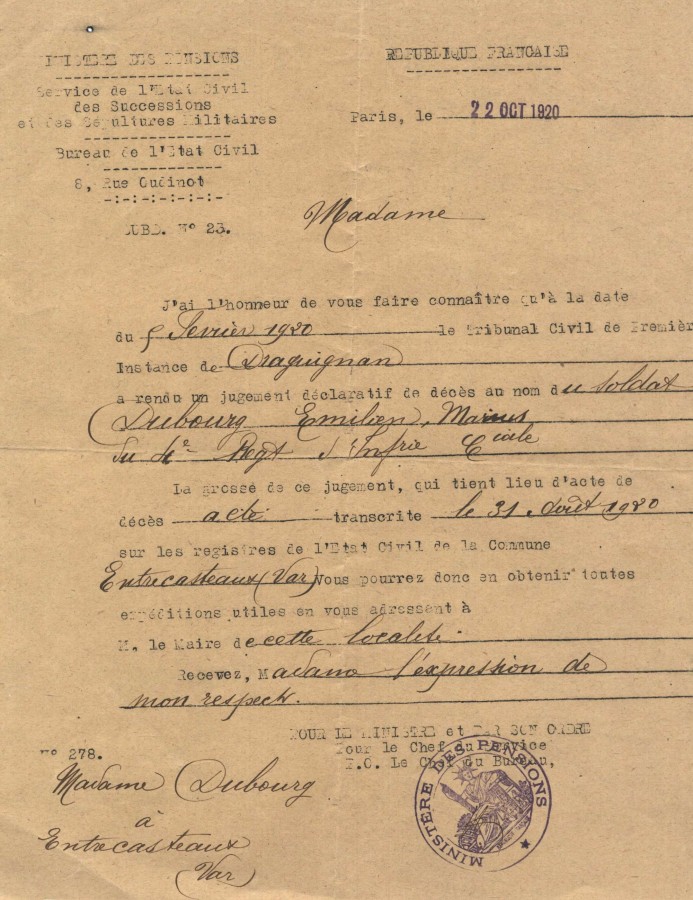 MINISTERE DES PENSIONS
Service de l'Etat Civil
des Successions
et des Sépultures Militaires
Bureau de l'Etat Civil
8, Rue Oudinot
-:-:-:-:-:-
SUBD. N° 23.
REPUBLIQUE FRANCAISE
Paris, le 22 OCT 1920
Madame
J'ai l'honneur de vous faire connaître qu'à la date
du 5 Fevrier 1920 le Tribunal Civil de Première
Instance de Draguignan
a rendu un jugement déclaratif de décès au nom du soldat
Dubourg Emilien, Marius
du 4e Regt d'Infrie Cciale
La grosse de ce jugement, qui tient lieu d'acte de
décès acté transcrite le 31 Août 1920
sur les registres de l'Etat Civil de la Commune
Entrecasteaux (Var) Vous pourrez donc en obtenir toutes
expéditions utiles en vous adressent à
M. le Maire de cette localité.
Recevez, Madame l'expression de
mon respect.
POUR LE MINISTRE et PAR SON ORDRE
Pour le Chef du Service
P.O. Le Chef du Bureau,
MINISTÈRE DES PENSIONS
N° 278.
Madame Dubourg
à
Entrecasteaux
(Var)